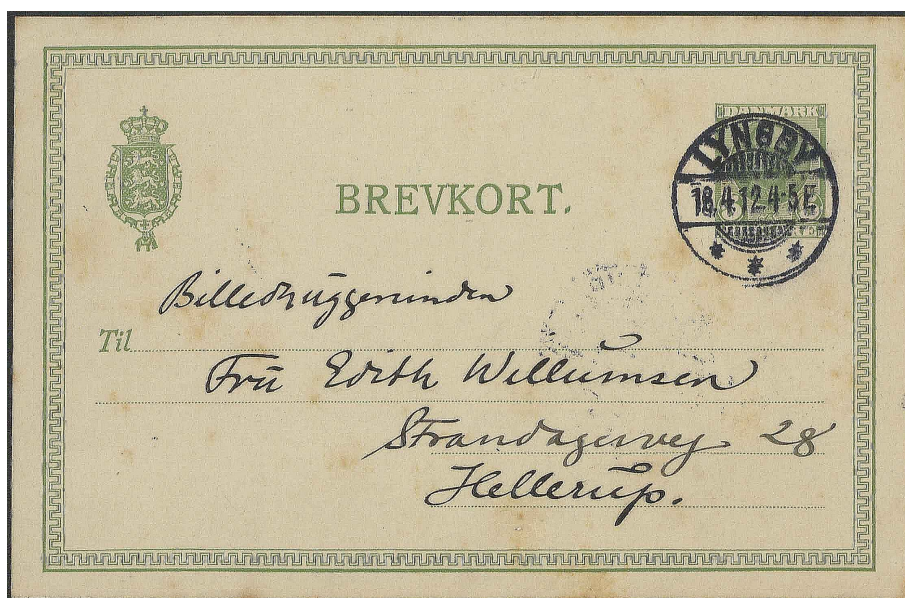 DANMARK
LYNGBY
18.4.12.4-5E
BREVKORT.
Billedhuggerinden
Til
Fru Edith Willumsen
Strandagervej 28
Hellerup.